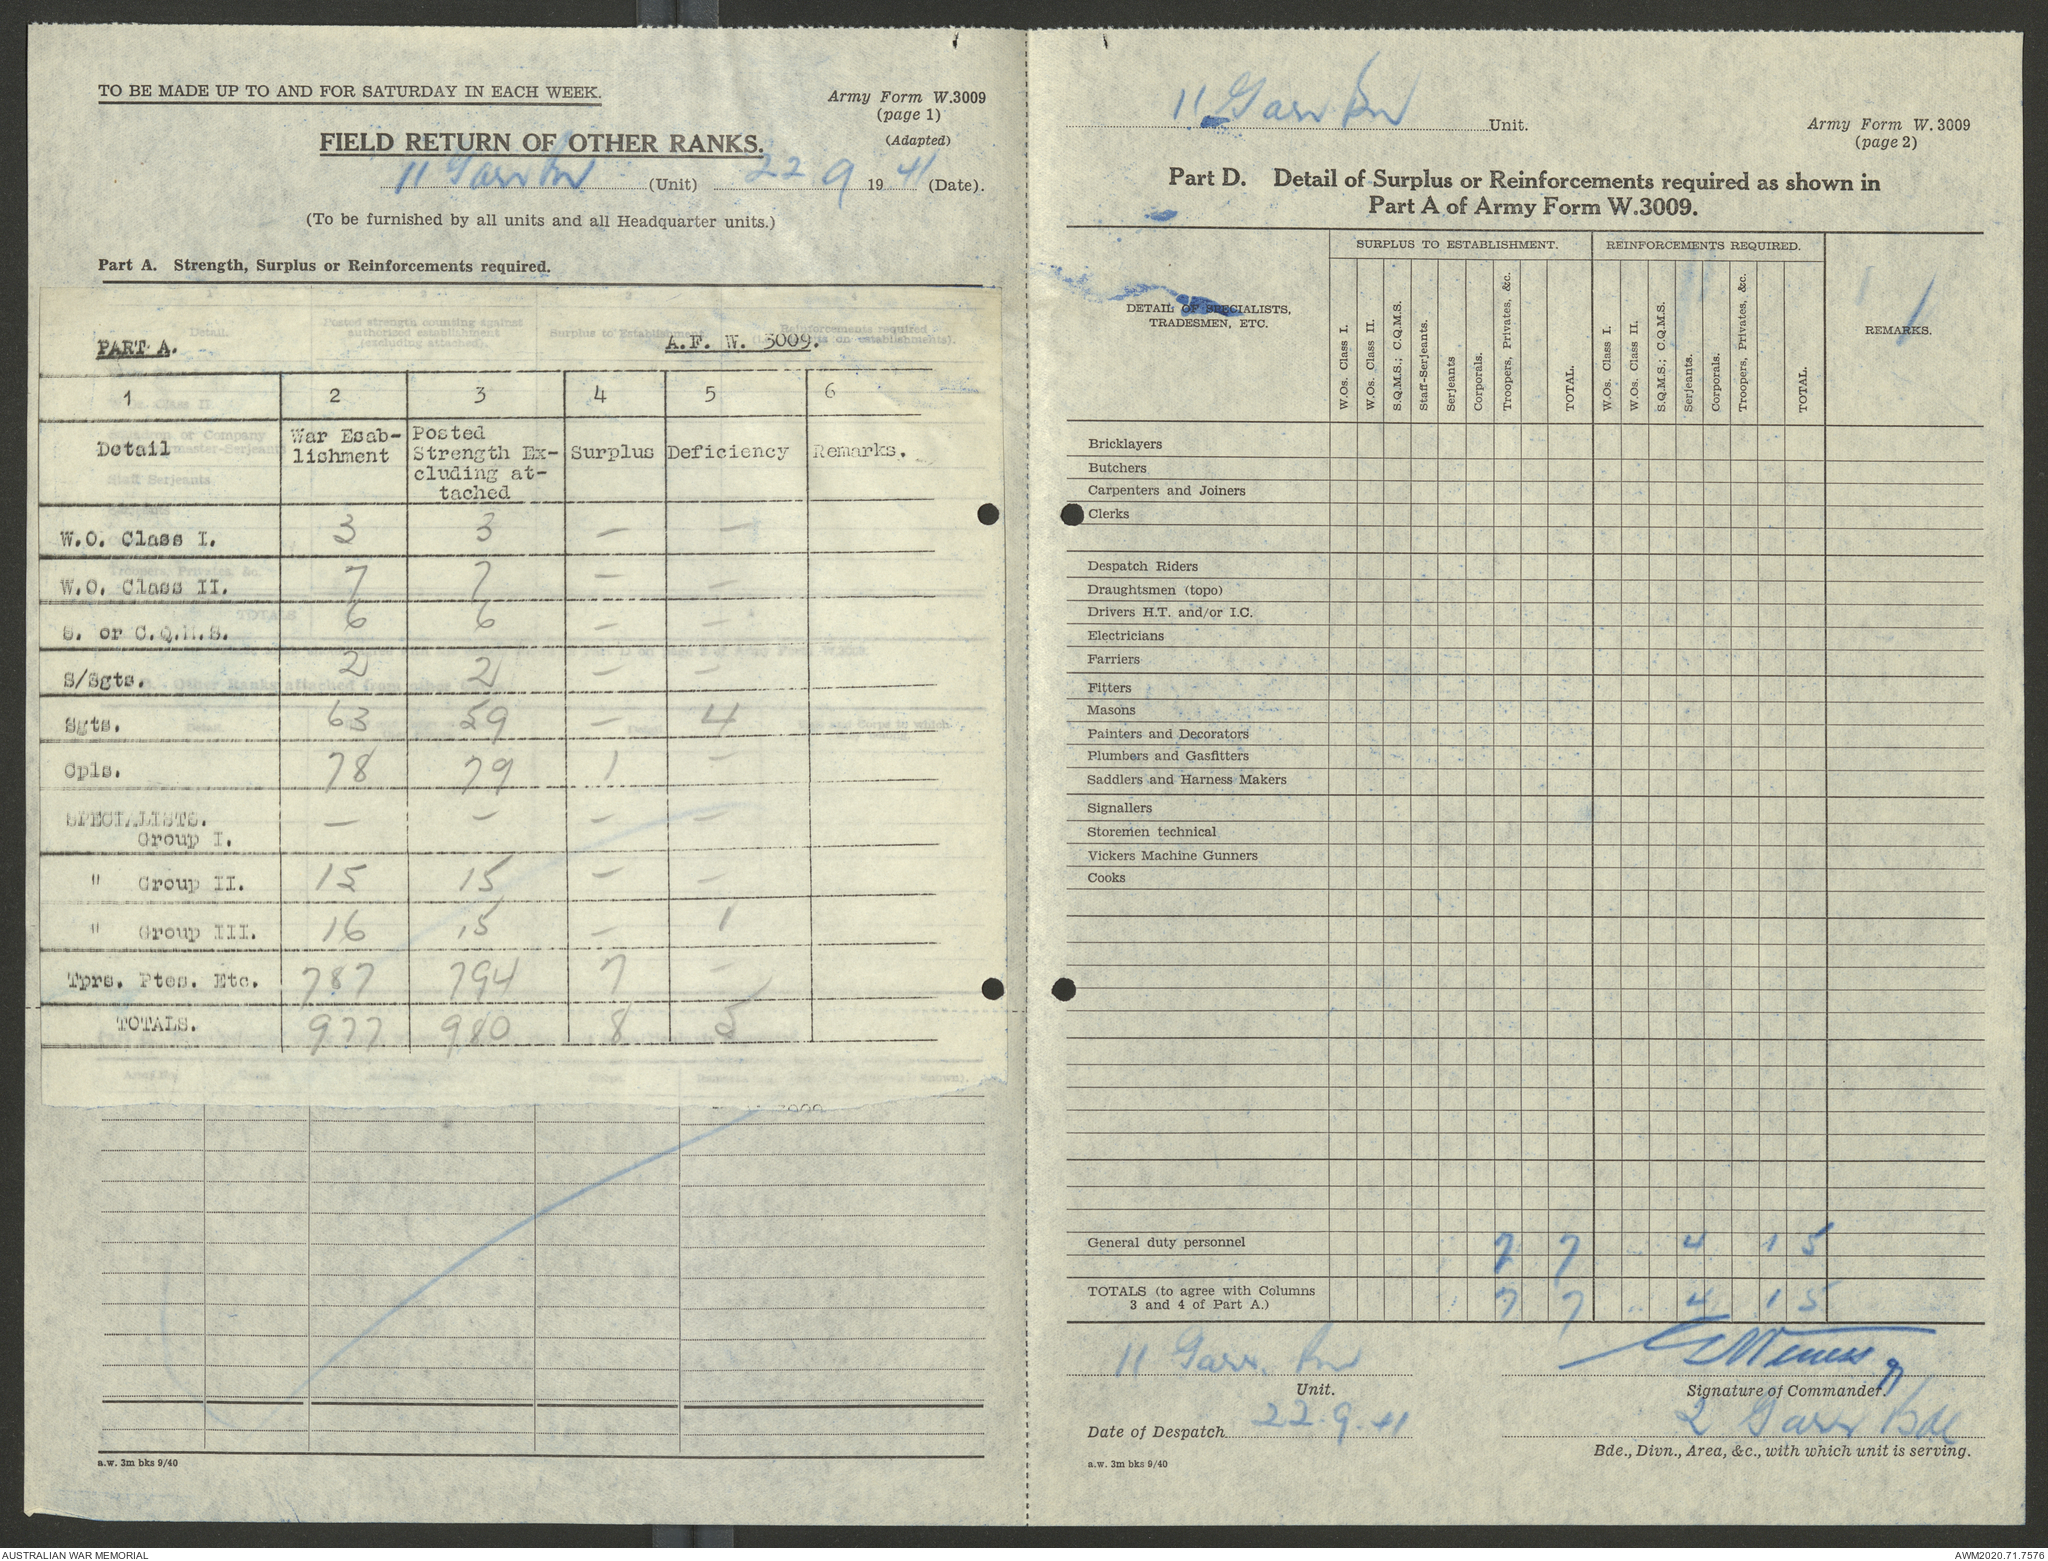 TO BE MADE UP TO AND FOR SATURDAY IN EACH WEEK.
Army Form W.3009
(page 1)
(Adapted)
FIELD RETURN OF OTHER RANKS.
11 Garr Bn (Unit) 22 9 19 41 (Date).
(To be furnished by all units and all Headquarter units.)
Part A. Strength, Surplus or Reinforcements required.
PART A. A.F. W. 3009.
1 2 3 4 5 6
Detail War Esab-lishment Posted Strength Ex-cluding at-tached Surplus Deficiency Remarks.
W.O. Class I. 3 3 — —
W.O. Class II. 7 7 — —
S. or C.Q.M.S. 6 6 — —
S/Sgts. 2 2 — —
Sgts. 63 59 — 4
Cpls. 78 79 1 —
SPECIALISTS. Group I. — — — —
" Group II. 15 15 — —
" Group III. 16 15 — 1
Tprs. Ptes. Etc. 787 794 7 —
TOTALS. 977 980 8 5
a.w. 3m bks 9/40
11 Garr Bn Unit.
Army Form W. 3009
(page 2)
Part D. Detail of Surplus or Reinforcements required as shown in
Part A of Army Form W.3009.
DETAIL OF SPECIALISTS, TRADESMEN, ETC.
SURPLUS TO ESTABLISHMENT. REINFORCEMENTS REQUIRED.
W.Os. Class I. W.Os. Class II. S.Q.M.S.; C.Q.M.S. Staff-Serjeants. Serjeants Corporals. Troopers, Privates, &c. TOTAL. W.Os. Class I. W.Os. Class II. S.Q.M.S.; C.Q.M.S. Serjeants. Corporals. Troopers, Privates, &c. TOTAL.
REMARKS.
Bricklayers
Butchers
Carpenters and Joiners
Clerks
Despatch Riders
Draughtsmen (topo)
Drivers H.T. and/or I.C.
Electricians
Farriers
Fitters
Masons
Painters and Decorators
Plumbers and Gasfitters
Saddlers and Harness Makers
Signallers
Storemen technical
Vickers Machine Gunners
Cooks
General duty personnel 7 7 4 1 5
TOTALS (to agree with Columns 3 and 4 of Part A.) 7 7 4 1 5
11 Garr. Bn
Unit.
Signature of Commander.
Date of Despatch 22.9.41
2 Garr Bde
Bde., Divn., Area, &c., with which unit is serving.
a.w. 3m bks 9/40
AUSTRALIAN WAR MEMORIAL
AWM2020.71.7576